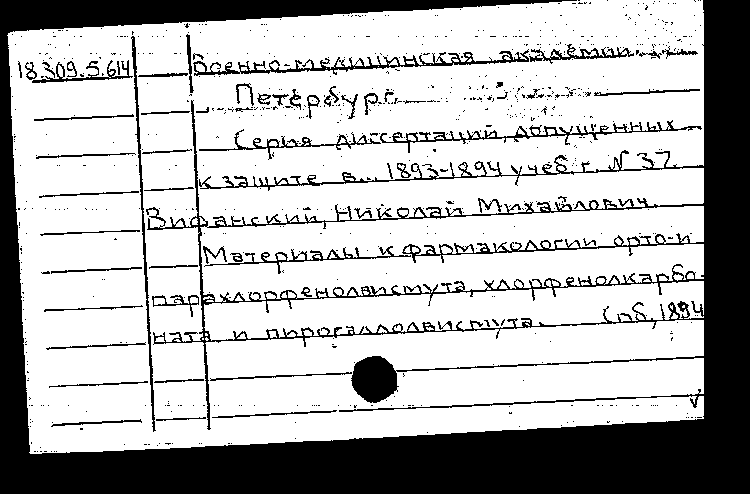 18.309.5.614
Военно-медицинская академия.
Петербург.
Серия диссертаций, допущенных
к защите в... 1893-1894 учеб. г. N 37.
Вифанский, Николай Михайлович.
Материалы к фармакологии орто-и
парахлорфенолвисмута, хлорфенолкарбо-
ната и пирогаллолвисмута. Спб, 1894